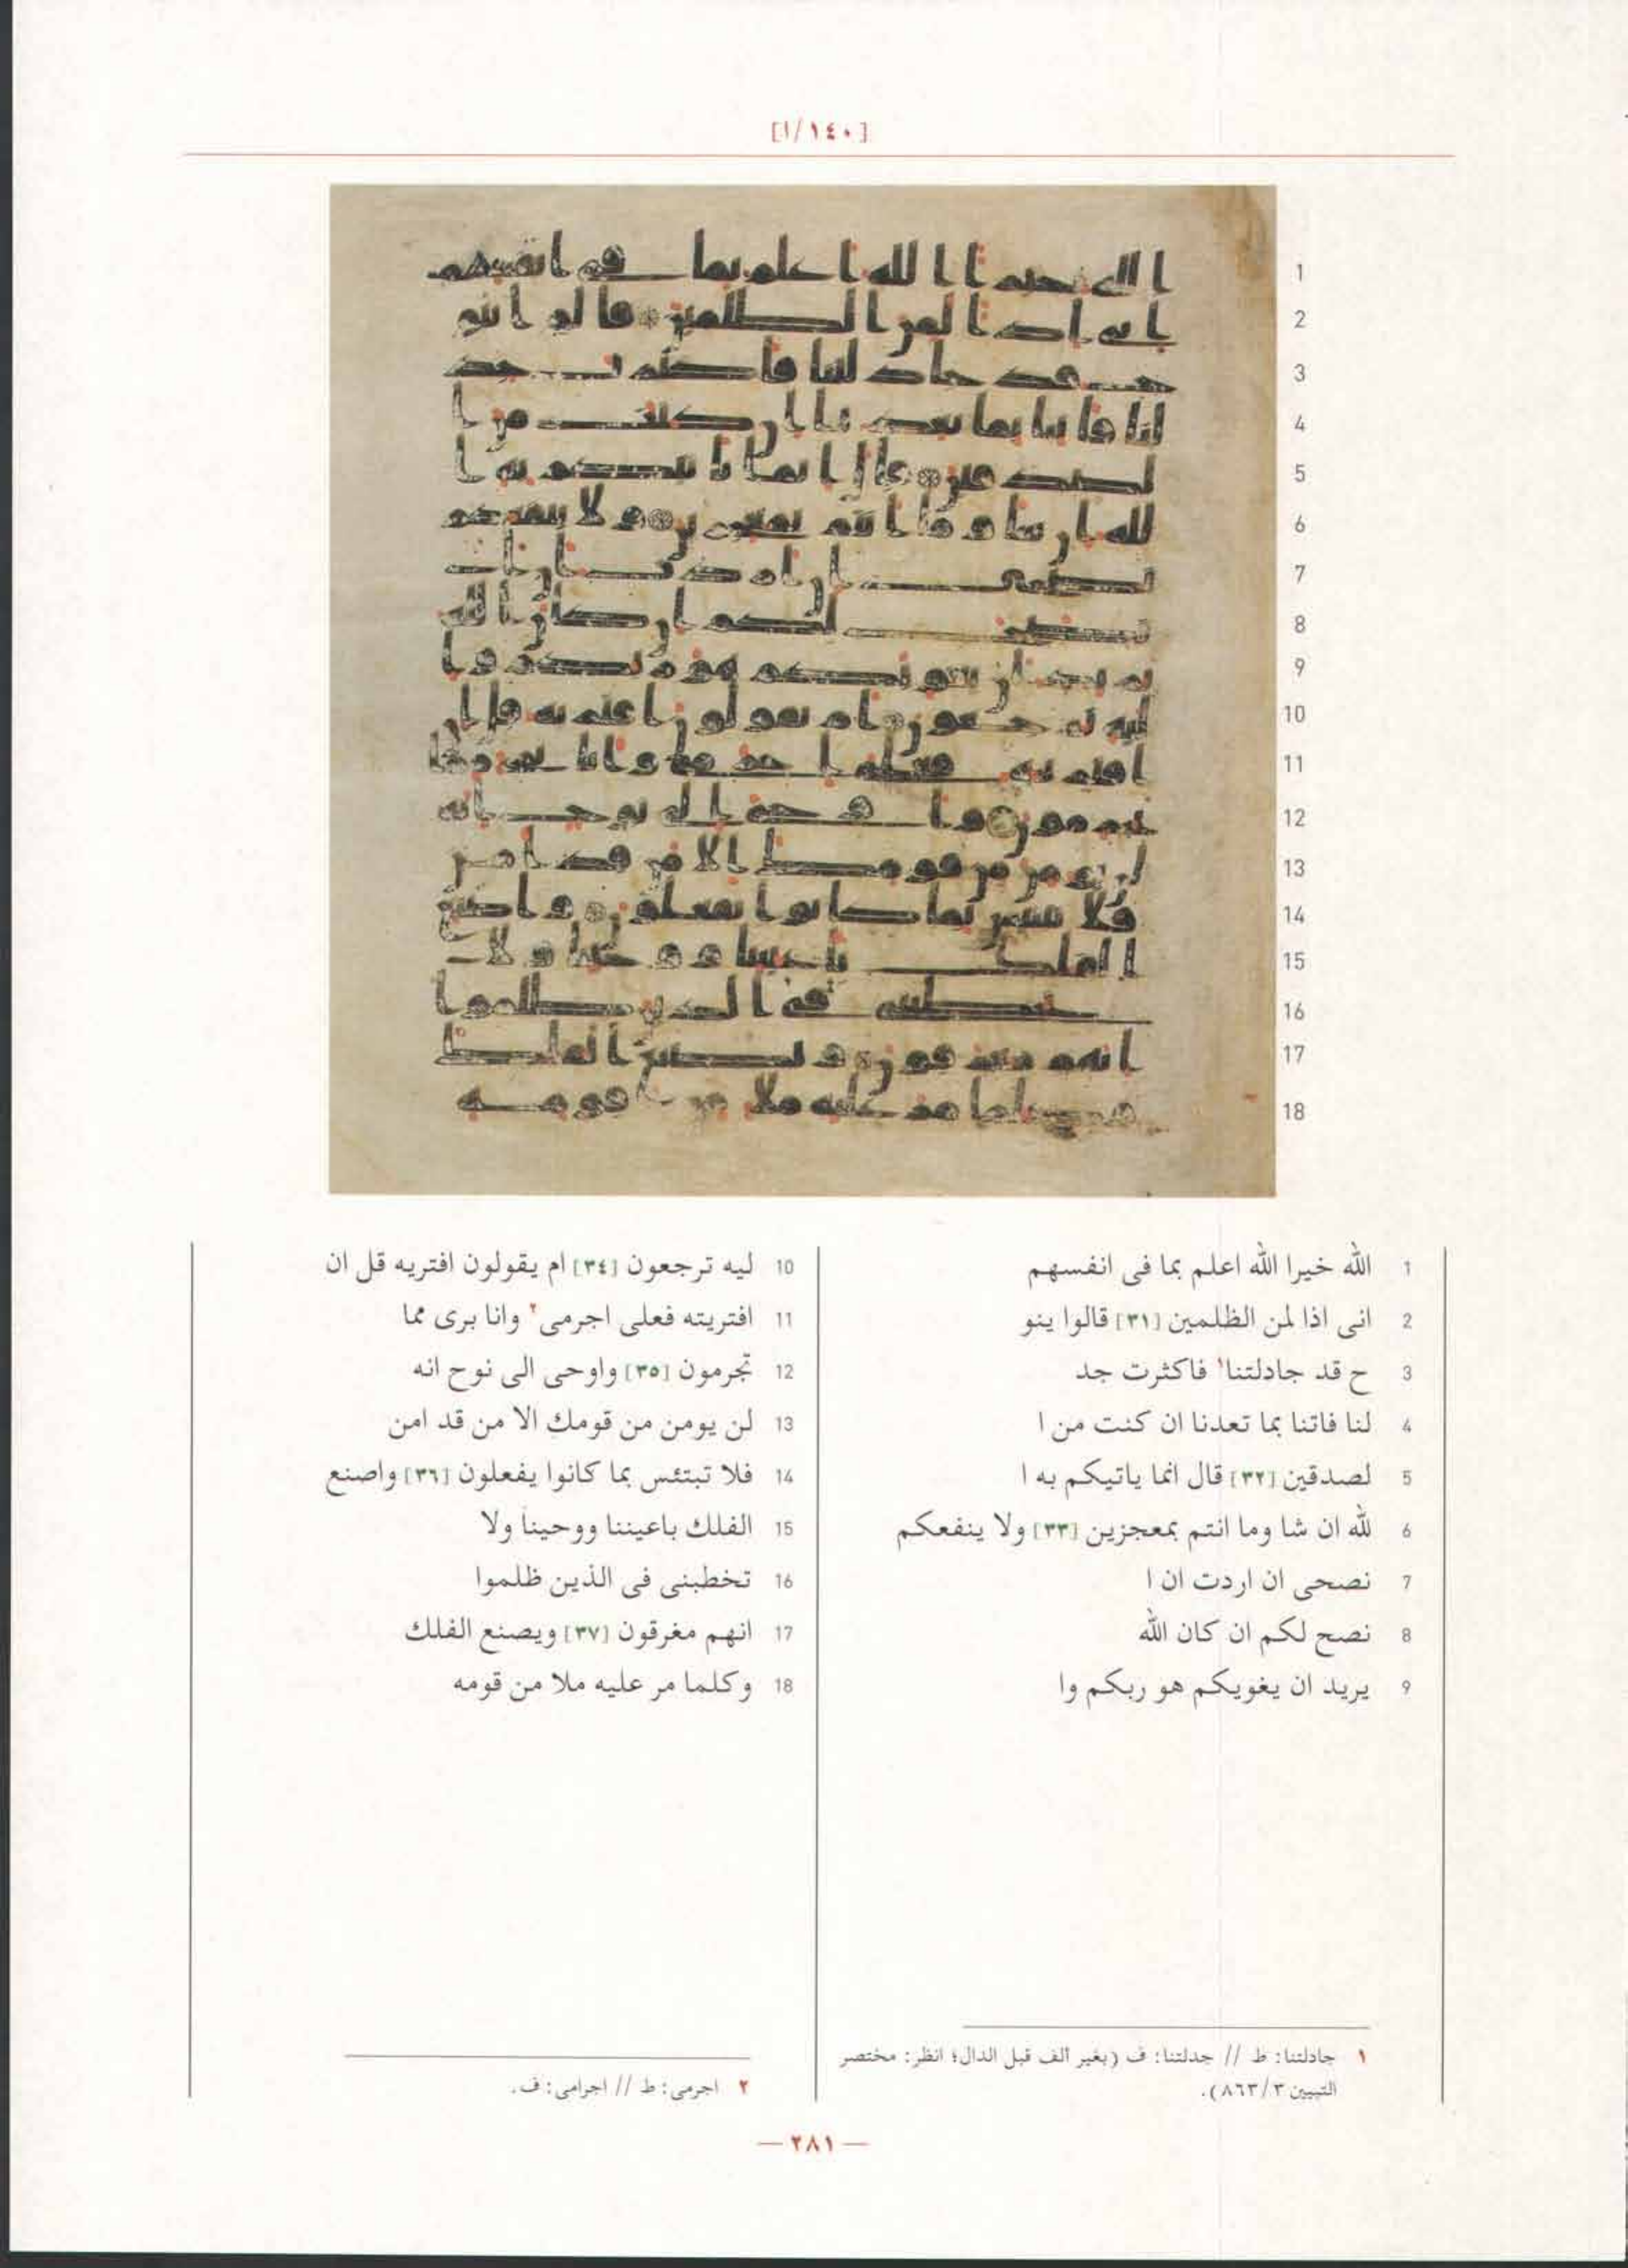 [١٤٠/ا]
1
2
3
4
5
6
7
8
9
10
11
12
13
14
15
16
17
18
1 الله خيرا الله اعلم بما فى انفسهم
2 انى اذا لمن الظلمين [٣١] قالوا ينو
3 ح قد جادلتنا١ فاكثرت جد
4 لنا فاتنا بما تعدنا ان كنت من ا
5 لصدقين [٣٢] قال انما ياتيكم به ا
6 لله ان شا وما انتم بمعجزين [٣٣] ولا ينفعكم
7 نصحى ان اردت ان ا
8 نصح لكم ان كان الله
9 يريد ان يغويكم هو ربكم وا
10 ليه ترجعون [٣٤] ام يقولون افتريه قل ان
11 افتريته فعلى اجرمى٢ وانا برى مما
12 تجرمون [٣٥] واوحى الى نوح انه
13 لن يومن من قومك الا من قد امن
14 فلا تبتئس بما كانوا يفعلون [٣٦] واصنع
15 الفلك باعيننا ووحينا ولا
16 تخطبنى فى الذين ظلموا
17 انهم مغرقون [٣٧] ويصنع الفلك
18 وكلما مر عليه ملا من قومه
١ جادلتنا: ط // جدلتنا: ف (بغير ألف قبل الدال؛ انظر: مختصر
التبيين ٨٦٣/٣).
٢ اجرمى: ط // اجرامى: ف.
— ٢٨١ —